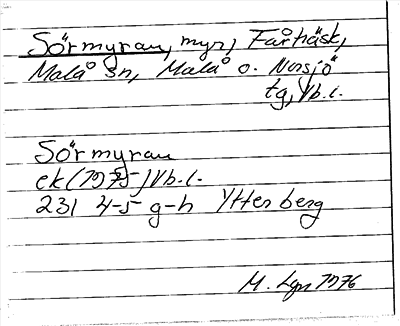 Sörmyran, myr, Fårträsk,
Malå sn, Malå o. Norsjö
tg, Vb.l.
Sörmyran
ek (1975) Vb.l.
231 4-5 g-h Ytterberg
M. Lgn 1976